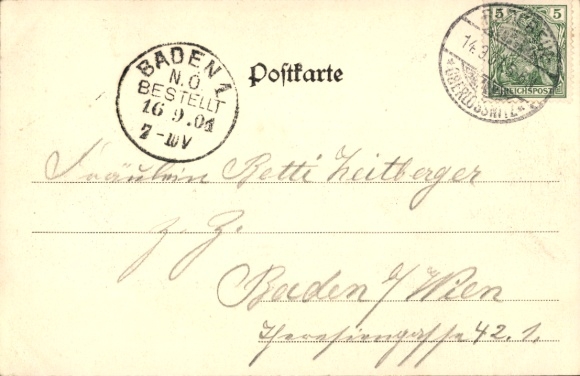 BADEN 1
N.Ö.
BESTELLT
16 9.01
7-10V
Postkarte
5 5
REICHSPOST
14.9
*OBERLÖSSNITZ*
Fräulein Betti Zeitberger
z. Z.
Baden a/Wien
42. 1.